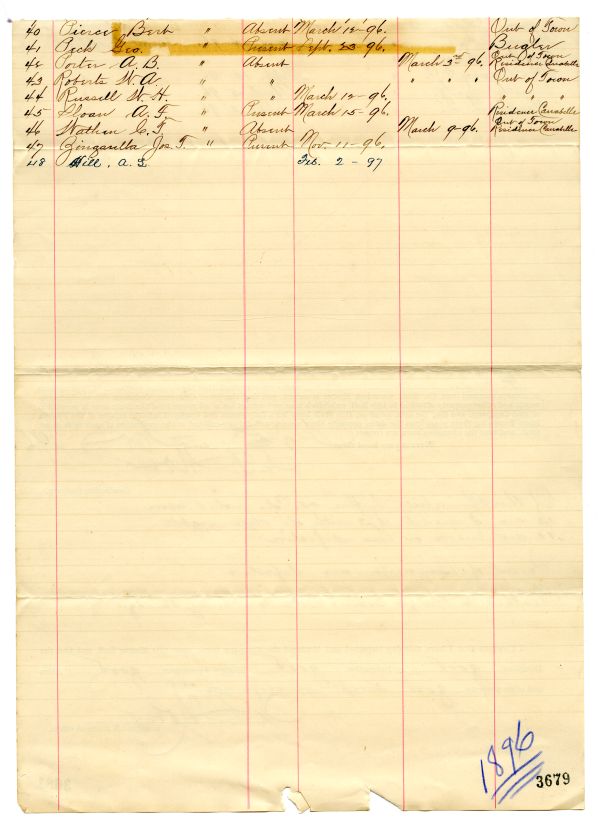 40 Pierce Bert " Absent March 12-96. Out of Town
41 Peck Geo. Present Sept. 23-96. Bugler
42 Porter A. B. " Absent March 5th 96. Out of Town Residence Carabelle
43 Roberts W. A. " " " " " Out of Town
44 Russell W. H. " " March 12-96. " " "
45 Sloan A. F. " Present March 15-96. Residence Carabelle
46 C. F. " Absent March 9-96. Out of Town Residence Carabelle
47 Jos. F. " Present Nov. 11-96.
48 Hill, A. S. Feb. 2-97
1896
3679